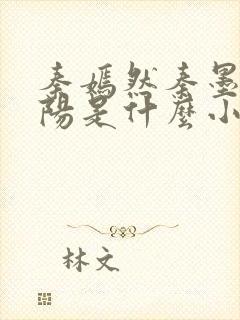 秦嫣然秦墨
陽是什麼小
林文